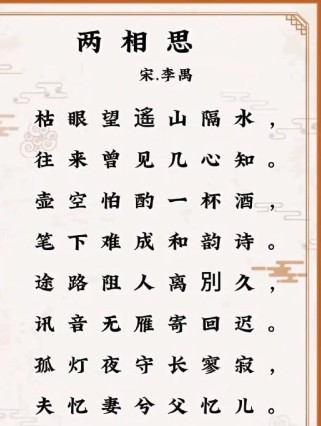 两相思
宋.李禺
枯眼望遥山隔水，
往来曾见几心知。
壶空怕酌一杯酒，
笔下难成和韵诗。
途路阻人离別久，
讯音无雁寄回迟。
孤灯夜守长寥寂，
夫忆妻兮父忆儿。